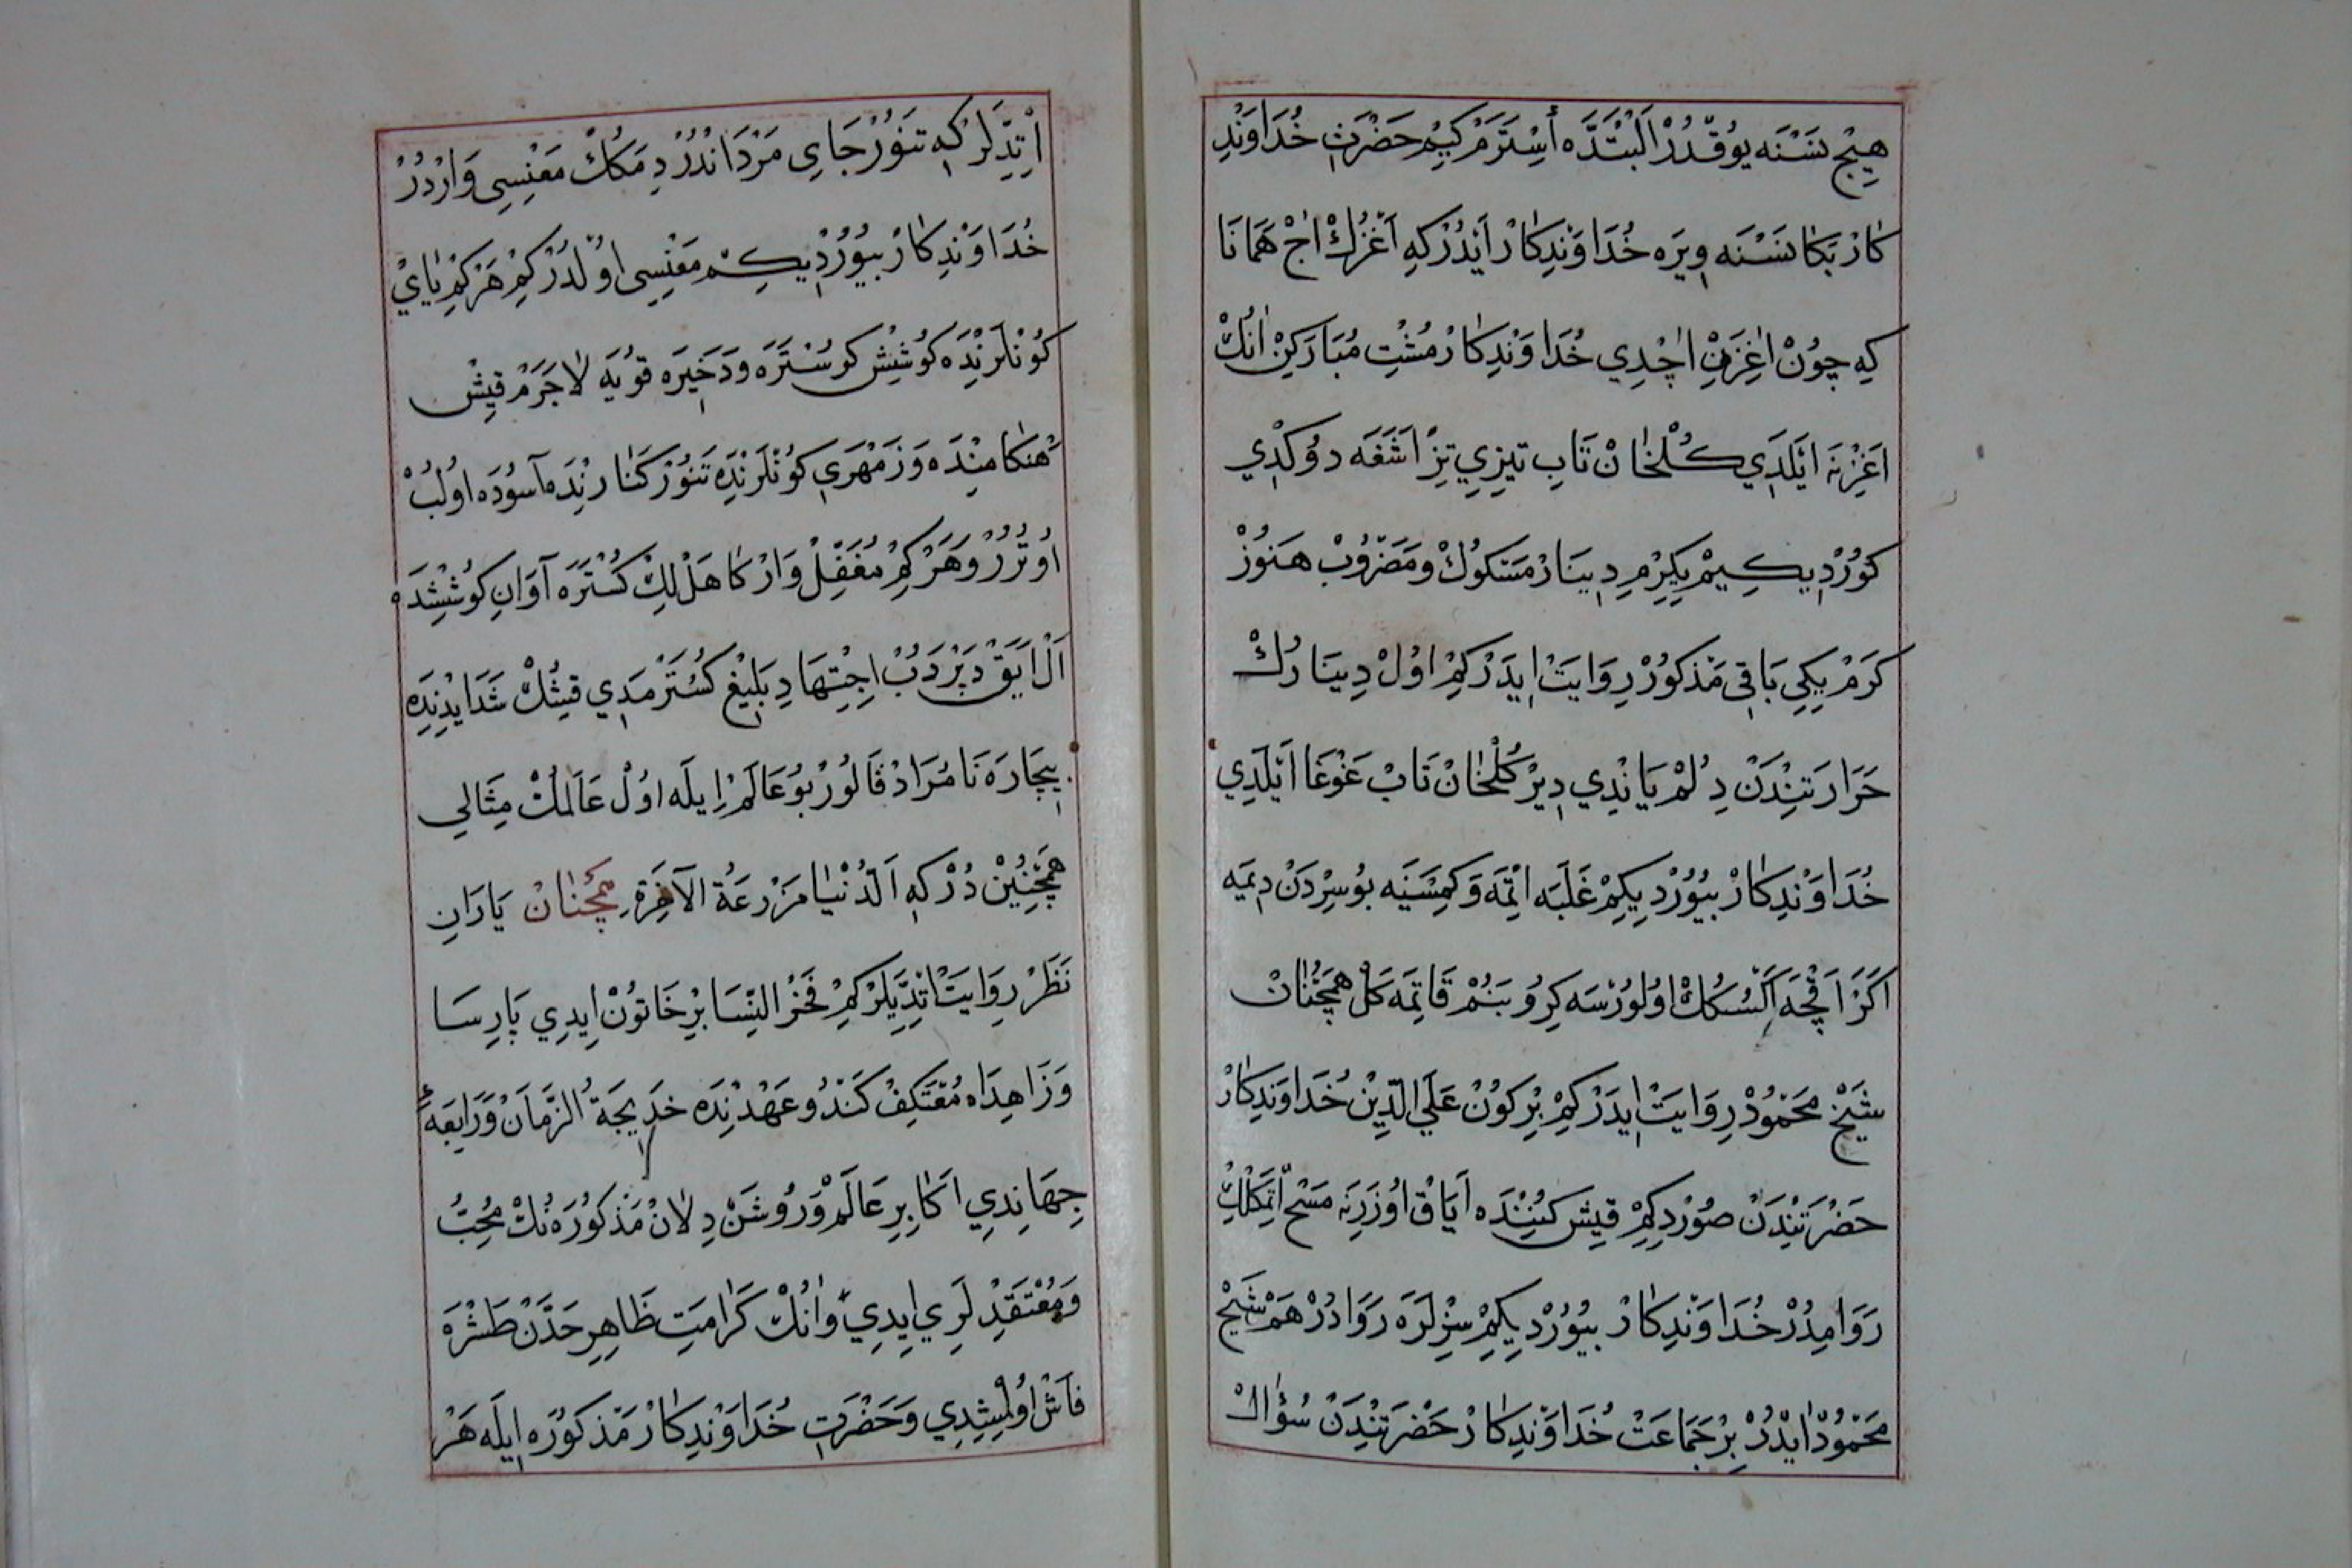 هِيچْ نَسْنَه يُوقْدُرْ اَلْبَتَّدَه أُسْتَرَمْ كِيمْ حَضْرَتِ خُدَاوَنْدِ
كَارْ بَكَا نَسْنَه وِيرَه خُدَاوَنْدِكَارْ اَيْدُرْكِه اَغْزُكْ اٰچْ هَمَانَا
كِه چُونْ اٰغِزَنِ اٰچْدِي خُدَاوَنْدِكَارْ مُشْتِ مُبَارَكِنْ اٰنُكْ
اَغْزِنَه اَيْلَدِي كُلْخَانْ تَابِ تِيزِي تِزْ اَشَغَه دُوكْدِي
كُورْدِيكِيمْ يِكِرْمِ دِينَارْ مَسْكُوكْ وَمَضْرُوبْ هَنُوزْ
كَرَمْ يِكِي بَاقِي مَذْكُورْ رِوَايَتْ اِيدَرْ كِمْ اوُلْ دِينَارُكْ
حَرَارَتِنْدَنْ دِلُمْ يَانْدِي دِيرْ كُلْخَانْ تَابْ غَوْغَا اَيْلَدِي
خُدَاوَنْدِكَارْ بُيُورْدِيكِمْ غَلَبَه اِتْمَه وَكِمْسَنَيَه بُو سِرْدَنْ دِمَيَه
اَكَرْ اَقْچَه اَكْسُكُكْ اوُلُورْسَه كِرُو بَنُمْ قَاتِمَه كَلْ هَمْچُنَانْ
شَيْخْ مَحْمُودْ رِوَايَتْ اِيدَرْ كِمْ بِرْ كُونْ عَلَي الدِّينْ خُدَاوَنْدِكَارْ
حَضْرَتِنْدَنْ صُورْدِكِمْ قِيشْ كُنِنْدَه اَيَاقْ اوُزَرِنَه مَسْح اِتْمَكْلِكْ
رَوَا مِدُرْ خُدَاوَنْدِكَارْ بُيُورْدِيكِمْ سِزْلَرَه رَوَادُرْ هَمْ شَيْخْ
مَحْمُودْ اَيْدُرْ بِرْ جَمَاعَتْ خُدَاوَنْدِكَارْ حَضْرَتِنْدَنْ سُؤَالْ
اِتْدِلَرْ كِه تَنُورْ جَايِ مَرْدَانْدُرْ دِمَكُكْ مَعْنِسِي وَارْدُرْ
خُدَاوَنْدِكَارْ بُيُورْدِيكِمْ مَعْنِسِي اوُلْدُرْ كِمْ هَرْكِمْ يَايْ
كُونْلَرِنْدَه كُوشِشْ كُوسْتَرَه وَدَخِيرَه قُويَه لَاجَرَمْ قِيشْ
هَنْكَامِنْدَه وَزَمْهَرِي كُونْلَرِنْدَه تَنُورْ كَنَارِنْدَه آسُودَه اوُلُبْ
اوُتُرُرْ وَهَرْكِمْ مُغَفَّلْ وَارْ كَاهَلْلِكْ كُسْتَرَه آوَانِ كُوشِشْدَه
اَلْ اَيَقْ دِپْرَدُبْ اِجْتِهَادِ بَلِيغْ كُسْتَرْمَدِي قِيشُكْ شَدَايِدِنْدَه
بِيچَارَه نَامُرَادْ قَالُورْ بُو عَالَمْ اِيلَه اوُلْ عَالَمُكْ مِثَالِي
هَمْچُنِينْ دُرْكِه اَلدُّنْيَا مَزْرَعَةُ الآخِرَةِ هَمْچُنَانْ يَارَانِ
نَظَرْ رِوَايَتْ اِتْدِيلَرْ كِمْ فَخْرُ النِّسَا بِرْ خَاتُونْ اِيدِي پَارِسَا
وَزَاهِدَاه مُعْتَكِفْ كَنْدُو عَهْدِنْدَه خَدِيجَةُ الزَّمَانْ وَرَابِعَهٔ
جِهَانِدِي اَكَابِرِ عَالَمْ وَرُوشَنْ دِلَانْ مَذْكُورَه نُكْ مُحِبُّ
وَمُعْتَقِدْلَرِي اِيدِي وَاٰنُكْ كَرَامَتِ ظَاهِرِ حَدَّنْ طَشْرَه
فَاشْ اوُلْمِشِدِي وَحَضْرَتِ خُدَاوَنْدِكَارْ مَذْكُورَه اِيلَه هَرْ